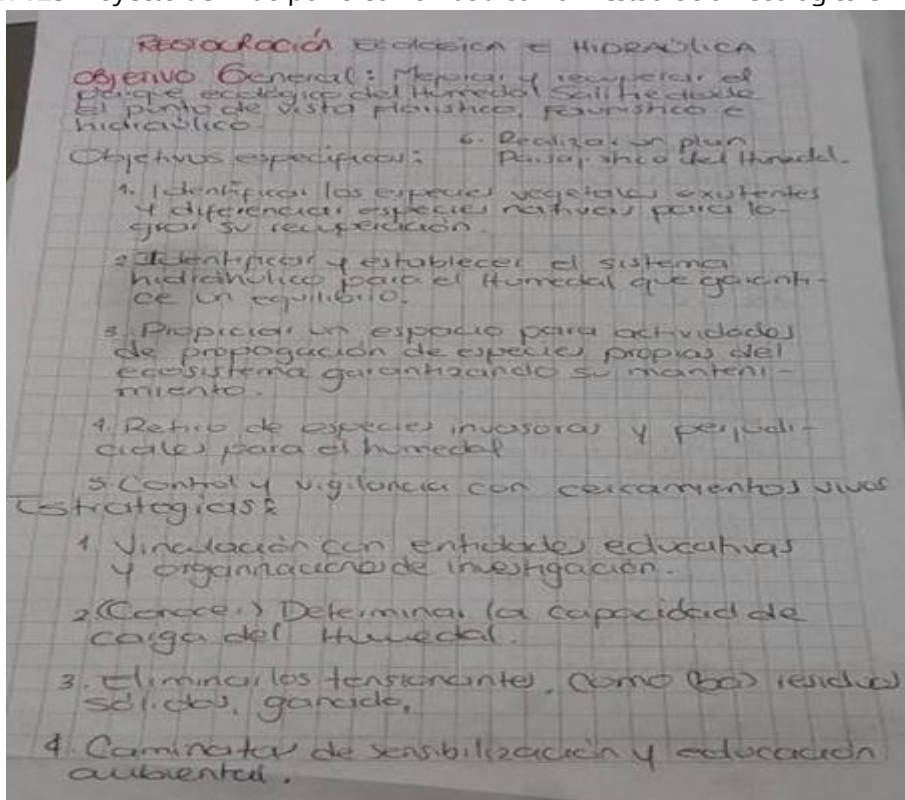 Restauración ecologica e HiDRAULiCA
Objetivo General: Mejorar y recuperar el
parque ecológico del Humedal Salitre desde
El punto de vista florístico, faunístico e
hidraúlico.
Objetivos especificos:
6. Realizar un plan
Paisajistico del Humedal.
1. Identificar las especies vegetales existentes
y diferenciar especies nativas para lo-
grar su recuperación.
2. Identificar y establecer el sistema
para el Humedal que garanti-
ce un equilibrio.
3. Propiciar un espacio para actividades
de propagación de especies propias del
ecosistema garantizando su manteni-
miento.
4. Retiro de especies invasoras y perjudi-
ciales para el humedal
5. Control y vigilancia con cercamientos vivos
Estrategias:
1. Vinculación con entidades educativas
y organizaciones de investigación.
2. (Conocer) Determinar la capacidad de
carga del Humedal.
3. Eliminar los tensionantes, como residuos
sólidos, ganado,
4. Caminatas de sensibilización y educación
ambiental.